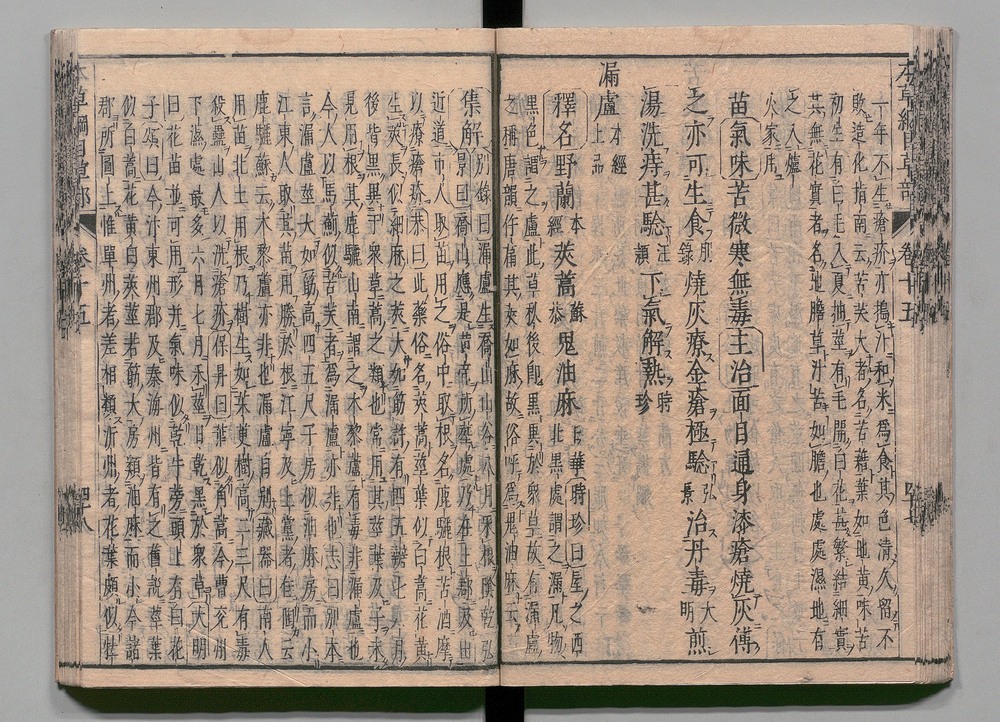 本草綱目草部 卷十五
一年不生瘡疥亦擣汁和米爲食其色清久留不
敗造化指南云苦芺大者名苦藉葉如地黃味苦
初生有白毛入夏抽莖有毛開白花甚繁結細實
其無花實者名地膽草汁苦如膽也處處濕地有
之入爐
火家用
苗氣味苦微寒無毒主治面目通身漆瘡燒灰傅
之亦可生食別錄燒灰療金瘡極驗弘景治丹毒大明煎
湯洗痔甚驗汪頴下氣解熱時珍
漏盧本經上品
釋名野蘭本經莢蒿蘇恭鬼油麻日華時珍曰屋之西
北黑處謂之漏凡物
黑色謂之盧此草秋後即黑異於衆草故有漏盧
之稱唐韻作𦵧其莢如麻故俗呼爲鬼油麻云
集解別錄曰漏盧生喬山山谷八月采根陰乾弘
景曰喬山應是黃帝所葬處乃在上郡今出
近道市人取苗用之俗中取根名鹿驪根苦酒摩
以療瘡疥恭曰此藥俗名莢蒿莖葉似白蒿花黃
生莢長似細麻之莢大如筯許有四五瓣七八月
後皆黑異于衆草蒿之類也常用其莖葉及子未
見用根其鹿驪山南謂之木黎蘆有毒非漏盧也
今人以馬薊似苦芺者爲漏盧亦非也志曰別本
言漏盧莖大如筯高四五尺子房似油麻房而小
江東人取其苗用勝於根江寧及上黨者佳陶云
鹿驪蘇云木黎蘆亦非也漏盧自別藏器曰南人
用苗北土用根乃樹生如茱萸樹高二三尺有毒
殺蠱山人以洗瘡疥保昇曰葉似角蒿今曹兗州
下濕處最多六月七月采莖日乾黑於衆草大明
曰花苗並可用形并氣味似乾牛蒡頭上有白花
子頌曰今汴東州郡及秦海州皆有之舊說莖葉
似白蒿花黃白莢莖若筯大房類油麻而小今諸
郡所圖上惟單州者差相類沂州者花葉頗似牡
本草綱目草部 卷十五 四十八